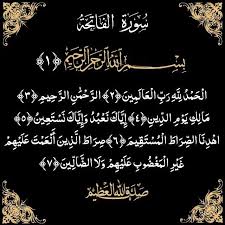 سُورَةُ الْفَاتِحَةِ
بِسْمِ اللَّهِ الرَّحْمَنِ الرَّحِيمِ ﴿١﴾
الْحَمْدُ لِلَّهِ رَبِّ الْعَالَمِينَ ﴿٢﴾ الرَّحْمَنِ الرَّحِيمِ ﴿٣﴾
مَالِكِ يَوْمِ الدِّينِ ﴿٤﴾ إِيَّاكَ نَعْبُدُ وَإِيَّاكَ نَسْتَعِينُ ﴿٥﴾
اهْدِنَا الصِّرَاطَ الْمُسْتَقِيمَ ﴿٦﴾ صِرَاطَ الَّذِينَ أَنْعَمْتَ عَلَيْهِمْ
غَيْرِ الْمَغْضُوبِ عَلَيْهِمْ وَلَا الضَّالِّينَ ﴿٧﴾
صدق الله العظيم